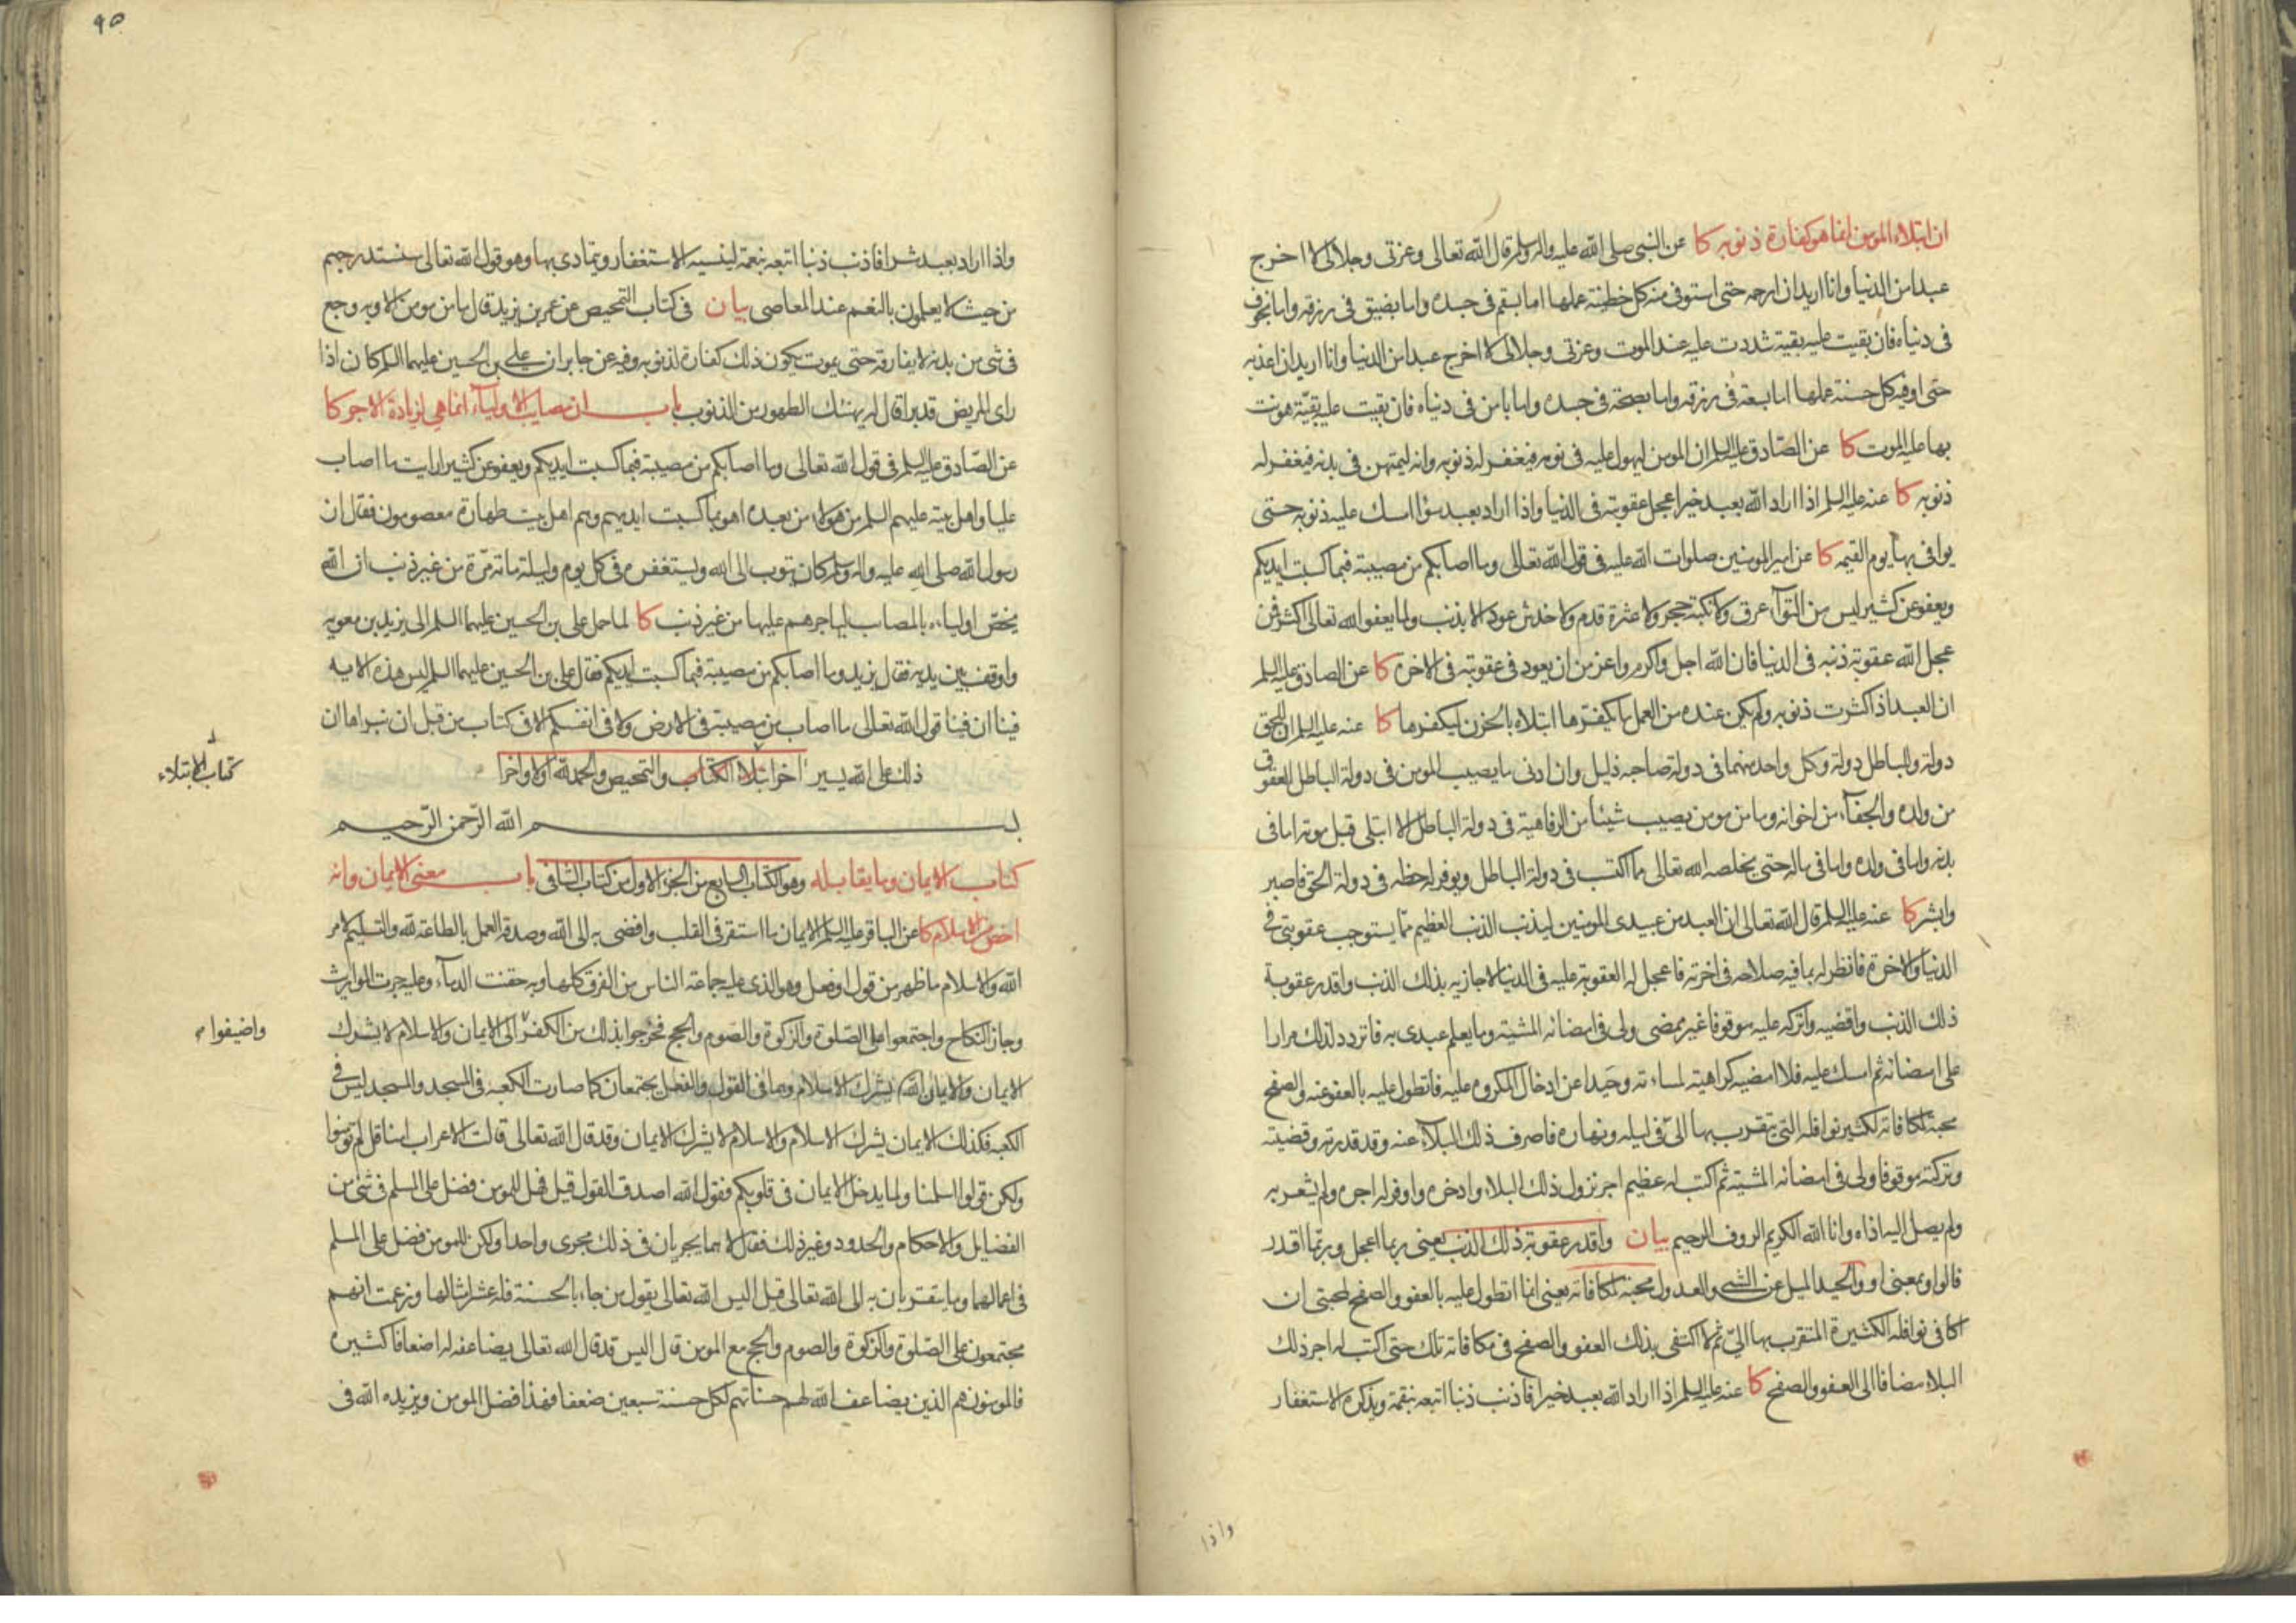 ان ابتلاء المومن انما هو كفارة ذنوبه كا عن النبى صلى الله عليه واله وسلم قال الله تعالى وعزتى وجلالى لا اخرج
عبدا من الدنيا وانا اريد ان ارحمه حتى استوفى منه كل خطيئة عملها اما بسقم فى جسده واما بضيق فى رزقه واما بخوف
فى دنياه فان بقيت عليه بقية شددت عليه عند الموت وعزتى وجلالى لا اخرج عبدا من الدنيا وانا اريد ان اعذبه
حتى اوفيه كل حسنة عملها اما بسعة فى رزقه واما بصحة فى جسده واما بامن فى دنياه فان بقيت عليه بقية هونت
بها عليه الموت كا عن الصادق عليه السلم ان المومن ليهول عليه فى نومه فيغفر له ذنوبه وانه ليمتهن فى بدنه فيغفر له
ذنوبه كا عنه عليه السلم اذا اراد الله بعبد خيرا عجل عقوبته فى الدنيا واذا اراد بعبد سؤا امسك عليه ذنوبه حتى
يوافى بها يوم القيمه كا عن امير المومنين صلوات الله عليه فى قول الله تعالى وما اصابكم من مصيبة فبما كسبت ايديكم
ويعفو عن كثير ليس من التوآء عرق ولا نكبة حجر ولا عثرة قدم ولا خدش عود الا بذنب ولما يعفو الله تعالى اكثر فمن
عجل الله عقوبة ذنبه فى الدنيا فان الله اجل واكرم واعز من ان يعود فى عقوبته فى الاخره كا عن الصادق عليه السلم
ان العبد اذا كثرت ذنوبه ولم يكن عنده من العمل ما يكفرها ابتلاه بالحزن ليكفرها كا عنه عليه السلم ان للحق
دولة وللباطل دولة وكل واحد منهما فى دولة صاحبه ذليل وان ادنى ما يصيب المومن فى دولة الباطل العقوق
من ولده والجفآء من اخوانه وما من مومن يصيب شيئا من الرفاهية فى دولة الباطل الا ابتلى قبل موته اما فى
بدنه واما فى ولده واما فى ماله حتى يخلصه الله تعالى مما اكتسب فى دولة الباطل ويوفر له حظه فى دولة الحق فاصبر
وابشر كا عنه عليه السلم قال الله تعالى ان العبد من عبيدى المومنين ليذنب الذنب العظيم مما يستوجب عقوبتى فى
الدنيا والاخرة فانظر له بما فيه صلاحه فى اخرته فاعجل له العقوبة عليه فى الدنيا لاجازيه بذلك الذنب واقدر عقوبة
ذلك الذنب واقضيه واتركه عليه موقوفا غير ممضى ولى فى امضائه المشية وما يعلم عبدى به فاتردد لذلك مرارا
على امضائه ثم امسك عليه فلا امضيه كراهية لمساءته وحيدا عن ادخال المكروه عليه فاتطول عليه بالعفو عنه والصفح
محبة لمكافاته لكثير نوافله التى يتقرب بها الى فى ليله ونهاره فاصرف ذلك البلآء عنه وقد قدرته وقضيته
وتركته موقوفا ولى فى امضائه المشية ثم اكتب له عظيم اجر نزول ذلك البلاء وادخره واوفر له اجره ولم يشعر به
ولم يصل اليه اذاه وانا الله الكريم الروف الرحيم بيان واقدر عقوبة ذلك الذنب يعنى ربما اعجل وربما اقدر
فالواو بمعنى او والحيد الميل عن الشى والعدول محبة لمكافاته يعنى انما اتطول عليه بالعفو والصفح لمحبتى ان
اكافى نوافله الكثيرة المتقرب بها الى ثم لا اكتفى بذلك العفو والصفح فى مكافاته تلك حتى اكتب له اجر ذلك
البلاء مضافا الى العفو والصفح كا عنه عليه السلم اذا اراد الله بعبد خيرا فاذنب ذنبا اتبعه بنقمة ويذكره الاستغفار
واذا
٩٥
واذا اراد بعبد شرا فاذنب ذنبا اتبعه بنعمة لينسيه الاستغفار ويتمادى بها وهو قول الله تعالى سنستدرجهم
من حيث لا يعلمون بالنعم عند المعاصى بيان فى كتاب التمحيص عن عمر بن يزيد قال ما من مومن الا وبه وجع
فى شى من بدنه لا يفارقه حتى يموت يكون ذلك كفارة لذنوبه وفيه عن جابر ان على بن الحسين عليهما السلم كان اذا
راى المريض قد برا قال له يهنئك الطهور من الذنوب باب ان مصايب الاوليآء انما هى لزيادة الاجر كا
عن الصادق عليه السلم فى قول الله تعالى وما اصابكم من مصيبة فبما كسبت ايديكم ويعفو عن كثير ارايت ما اصاب
عليا واهل بيته عليهم السلم من هولاء من بعده اهو بما كسبت ايديهم وهم اهل بيت طهارة معصومون فقال ان
رسول الله صلى الله عليه واله وسلم كان يتوب الى الله ويستغفره فى كل يوم وليلة مائة مرة من غير ذنب ان الله
يخص اولياءه بالمصايب لياجرهم عليها من غير ذنب كا لما حمل على بن الحسين عليهما السلم الى يزيد بن معويه
واوقف بين يديه فقال يزيد وما اصابكم من مصيبة فبما كسبت ايديكم فقال على بن الحسين عليهما السلم ليس هذه الايه
فينا ان فينا قول الله تعالى ما اصاب من مصيبة فى الارض ولا فى انفسكم الا فى كتاب من قبل ان نبراها ان
ذلك على الله يسير اخر ابتلاء الكتاب والتمحيص والحمد لله اولا واخرا
كتاب الابتلاء
بسم الله الرحمن الرحيم
كتاب الايمان وما يقابله وهو الكتاب السابع من الجزء الاول من كتاب الشافى باب معنى الايمان وانه
اخص من الاسلام كا عن الباقر عليه السلم الايمان ما استقر فى القلب وافضى به الى الله وصدقه العمل بالطاعة لله والتسليم لامر
الله والاسلام ما ظهر من قول او فعل وهو الذى عليه جماعة الناس من الفرق كلها وبه حقنت الدمآء وعليه جرت المواريث
وجاز النكاح واجتمعوا على الصلوة والزكوة والصوم والحج فخرجوا بذلك من الكفر الى الايمان والاسلام لا يشرك
واضيفوا
الايمان والايمان يشرك الاسلام وهما فى القول والفعل يجتمعان كما صارت الكعبه فى المسجد والمسجد ليس فى
الكعبه فكذلك الايمان يشرك الاسلام والاسلام لا يشرك الايمان وقد قال الله تعالى قالت الاعراب امنا قل لم تومنوا
ولكن قولوا اسلمنا ولما يدخل الايمان فى قلوبكم فقول الله اصدق القول قيل فهل للمومن فضل على المسلم فى شى من
الفضايل والاحكام والحدود وغير ذلك فقال لا هما يجريان فى ذلك مجرى واحدا ولكن للمومن فضل على المسلم
فى اعمالهما وما يتقربان به الى الله تعالى قيل اليس الله تعالى يقول من جاء بالحسنة فله عشر امثالها وزعمت انهم
مجتمعون على الصلوة والزكوة والصوم والحج مع المومن قال اليس قد قال الله تعالى يضاعفه له اضعافا كثيرة
فالمومنون هم الذين يضاعف الله لهم حسناتهم لكل حسنة سبعين ضعفا فهذا فضل المومن ويزيده الله فى